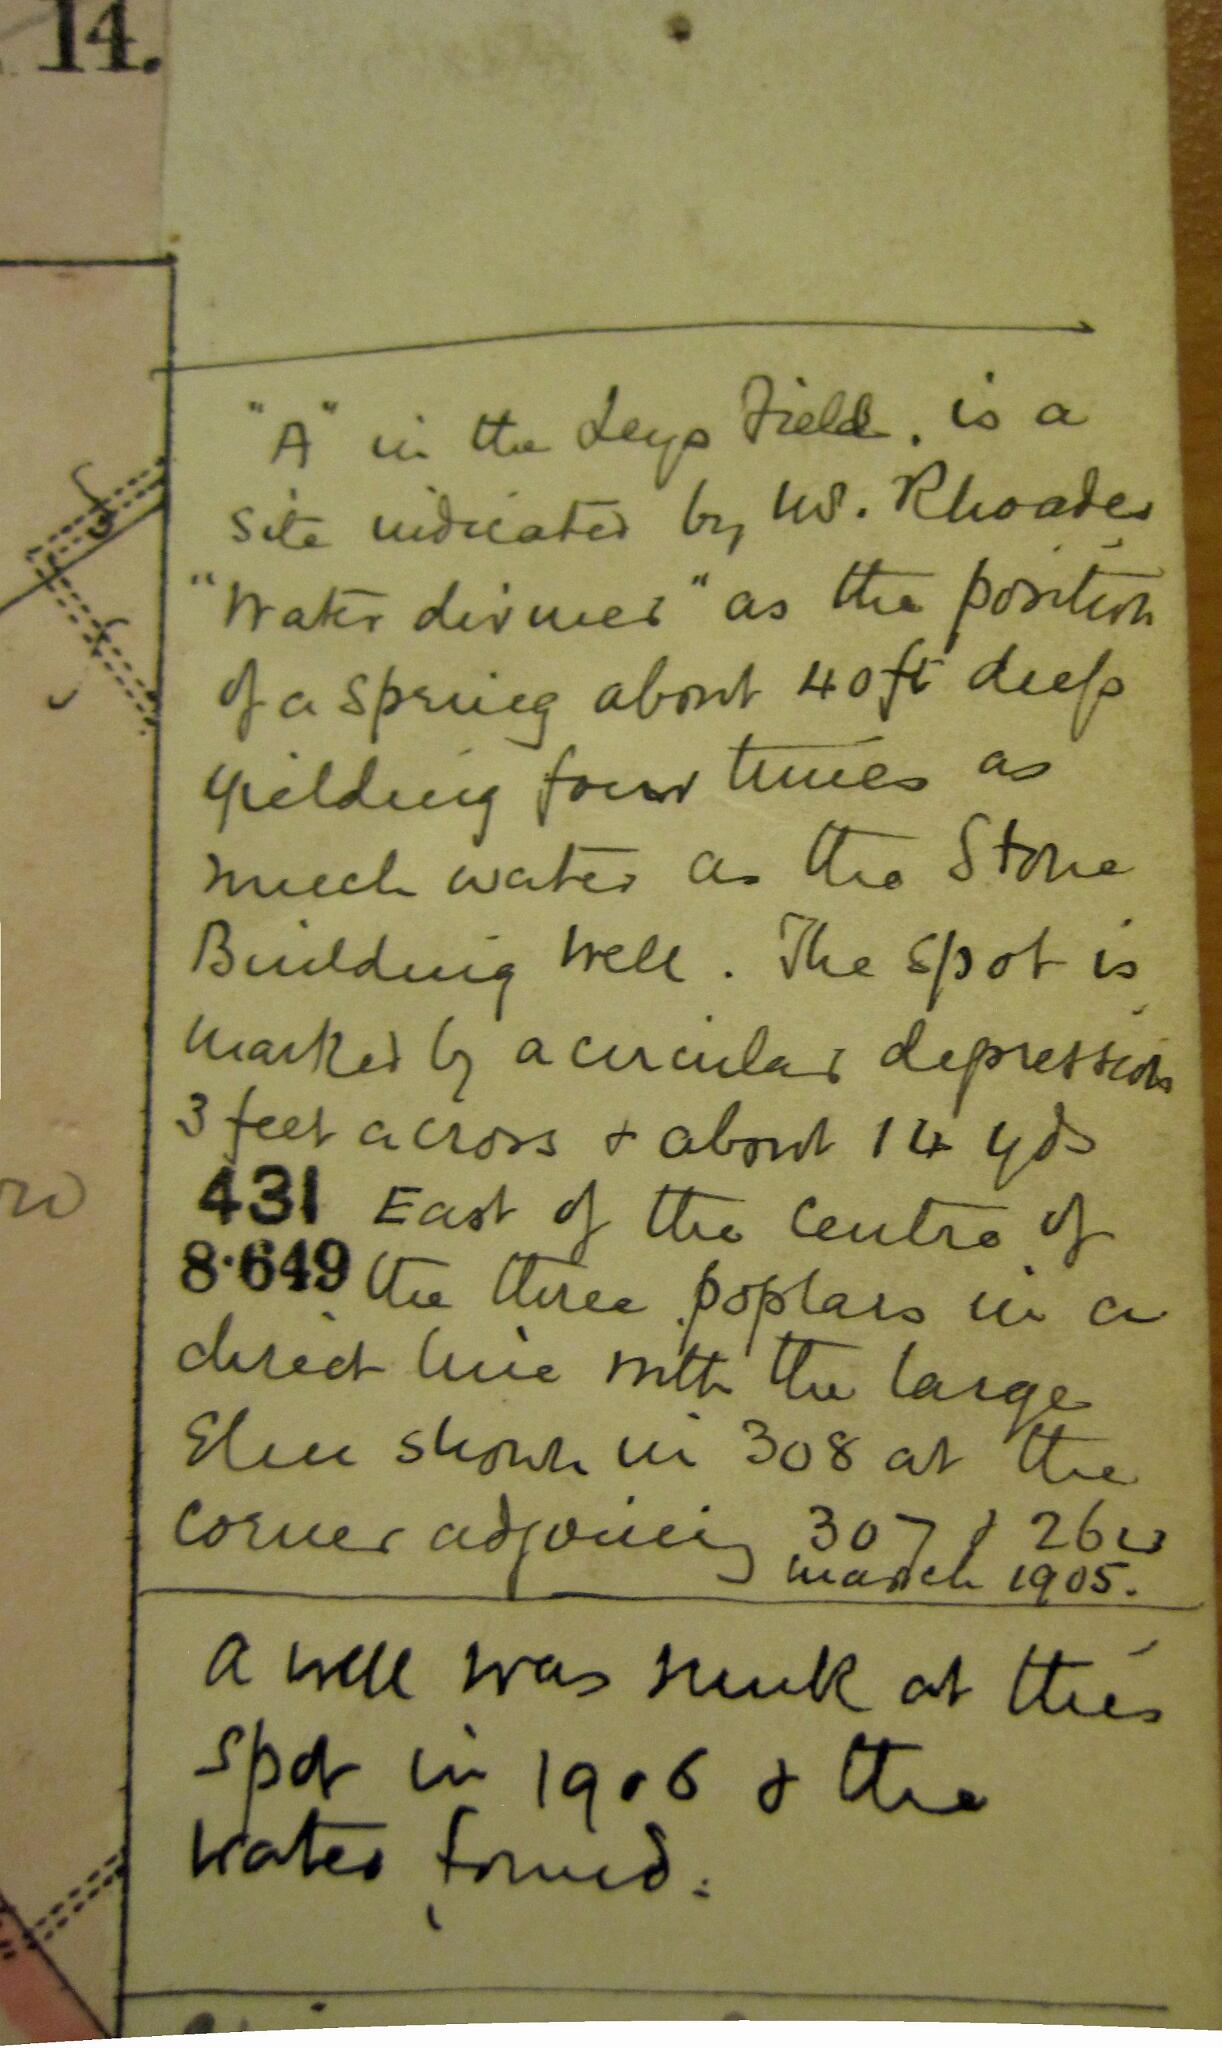 14.
"A" in the Leys Field, is a
site indicated by W. Rhoades
"Water diviner" as the position
of a spring about 40 ft deep
yielding four times as
much water as the Stone
Building Well. The spot is
marked by a circular depression
3 feet across & about 14 yds
431 East of the centre of
8.649 the three poplars in a
direct line with the large
Elm shown in 308 at the
corner adjoining 307 &
March 1905.
A well was sunk at this
spot in 1906 & the
water found.